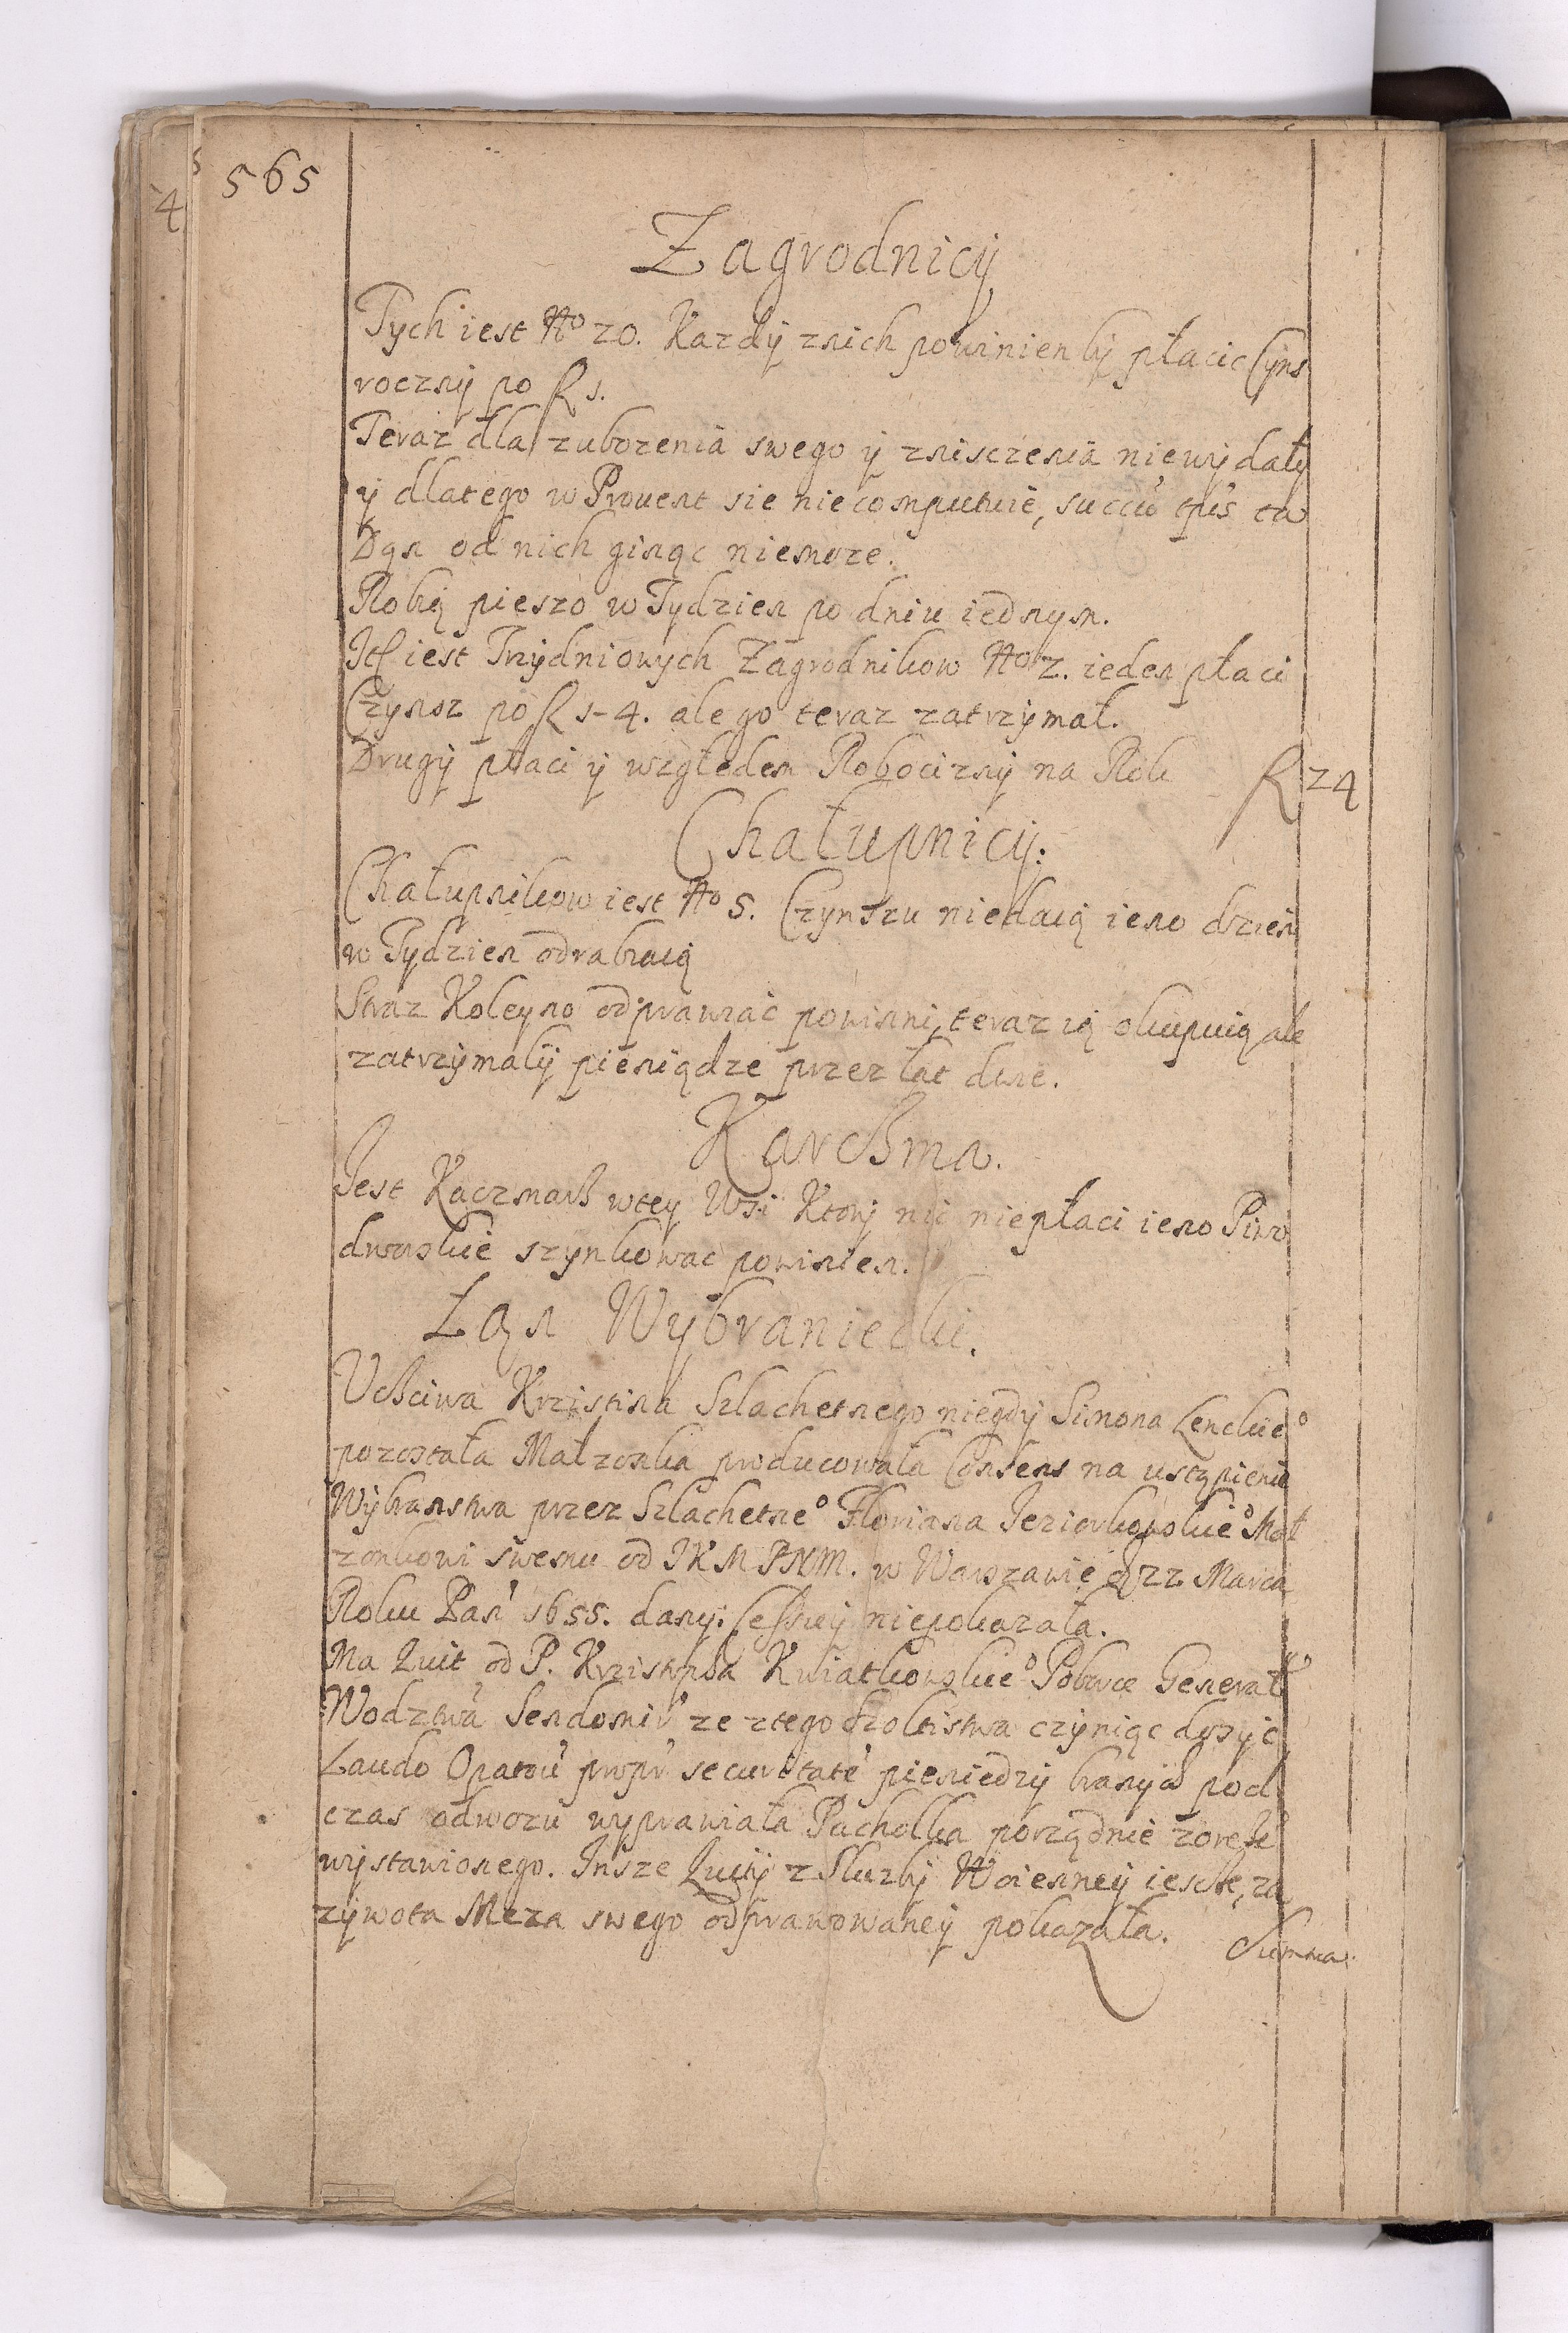 565
Zagrodnicy
Tych iest No 20. Kazdy znich powinienby płacic Cyns
roczny po f 1.
Teraz dla zubozenia swego y znisczenia niewydały
y dlatego w Prouent sie niecomputuie, succū tpis ta
Dan od nich ginąc niemoze.
Robią pieszo w Tydzien po dniu iednym.
Itē iest Trzydniowych Zagrodnikow No 2. ieden płaci
Czynsz po f 1-4. ale go teraz zatrzymał.
Drugy płaci y względem Robocizny na Rok f 24
Chałupnicy.
Chałupnikow iest No 5. Czynszu niedaią ieno dzien
w Tydzien odrabiaią
Straz Koleyno odprawiac powinni, teraz ią okupuią ale
zatrzymaly pieniądze przez lat dwie.
Karcsma.
Jest Kaczmarz wtey Wsi Ktory nic niepłaci ieno Piwo
dworskie szynkowac powinien.
Łan Wybraniecki.
Ucściwa Krzistina Szlachetnego niegdy Simona Lenckieo
pozostała Małzonka producowała Consens na ustąpienie
Wybranstwa przez Szlachetneo Floriana Jeziorkowskieo Mał
zonkowi swemu od JKM PNM. w Warszawie d 22 Marca
Roku Pan 1655. dany. Cessiey niepokazała.
Ma Quit od P. Krzistopha Kwiatkowskieo Poborce Generało
Wodztwa Sendomir ze ztego Szoltistwa czyniąc dosyc
Laudo Opatou propr securitate pieniedzy branych pod
czas odwozu wyprawiała Pachołka porządnie
wystawionego. Insze Quity z Sluzby Woienney iescze za
zywota Meza swego odprawowaney pokazała.
Summa